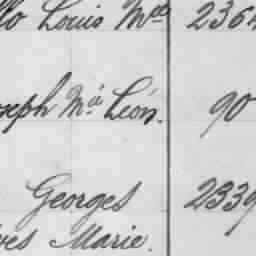 llo Louis Mce 2364
oseph Mie Léon. 90
Georges 2339
ves Marie.